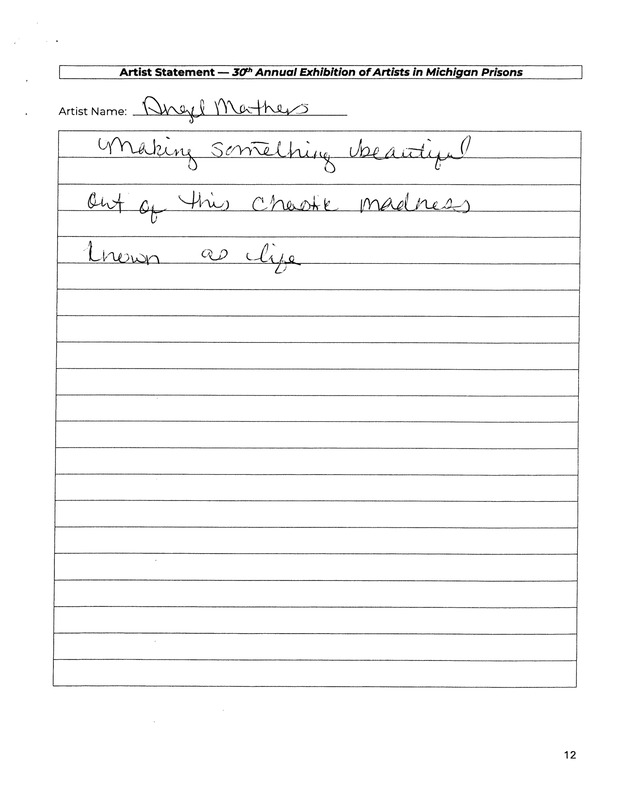 Artist Statement — 30th Annual Exhibition of Artists in Michigan Prisons
Artist Name: Angel Mathews
Making something beautiful
out of this chaotic madness
known as life
12